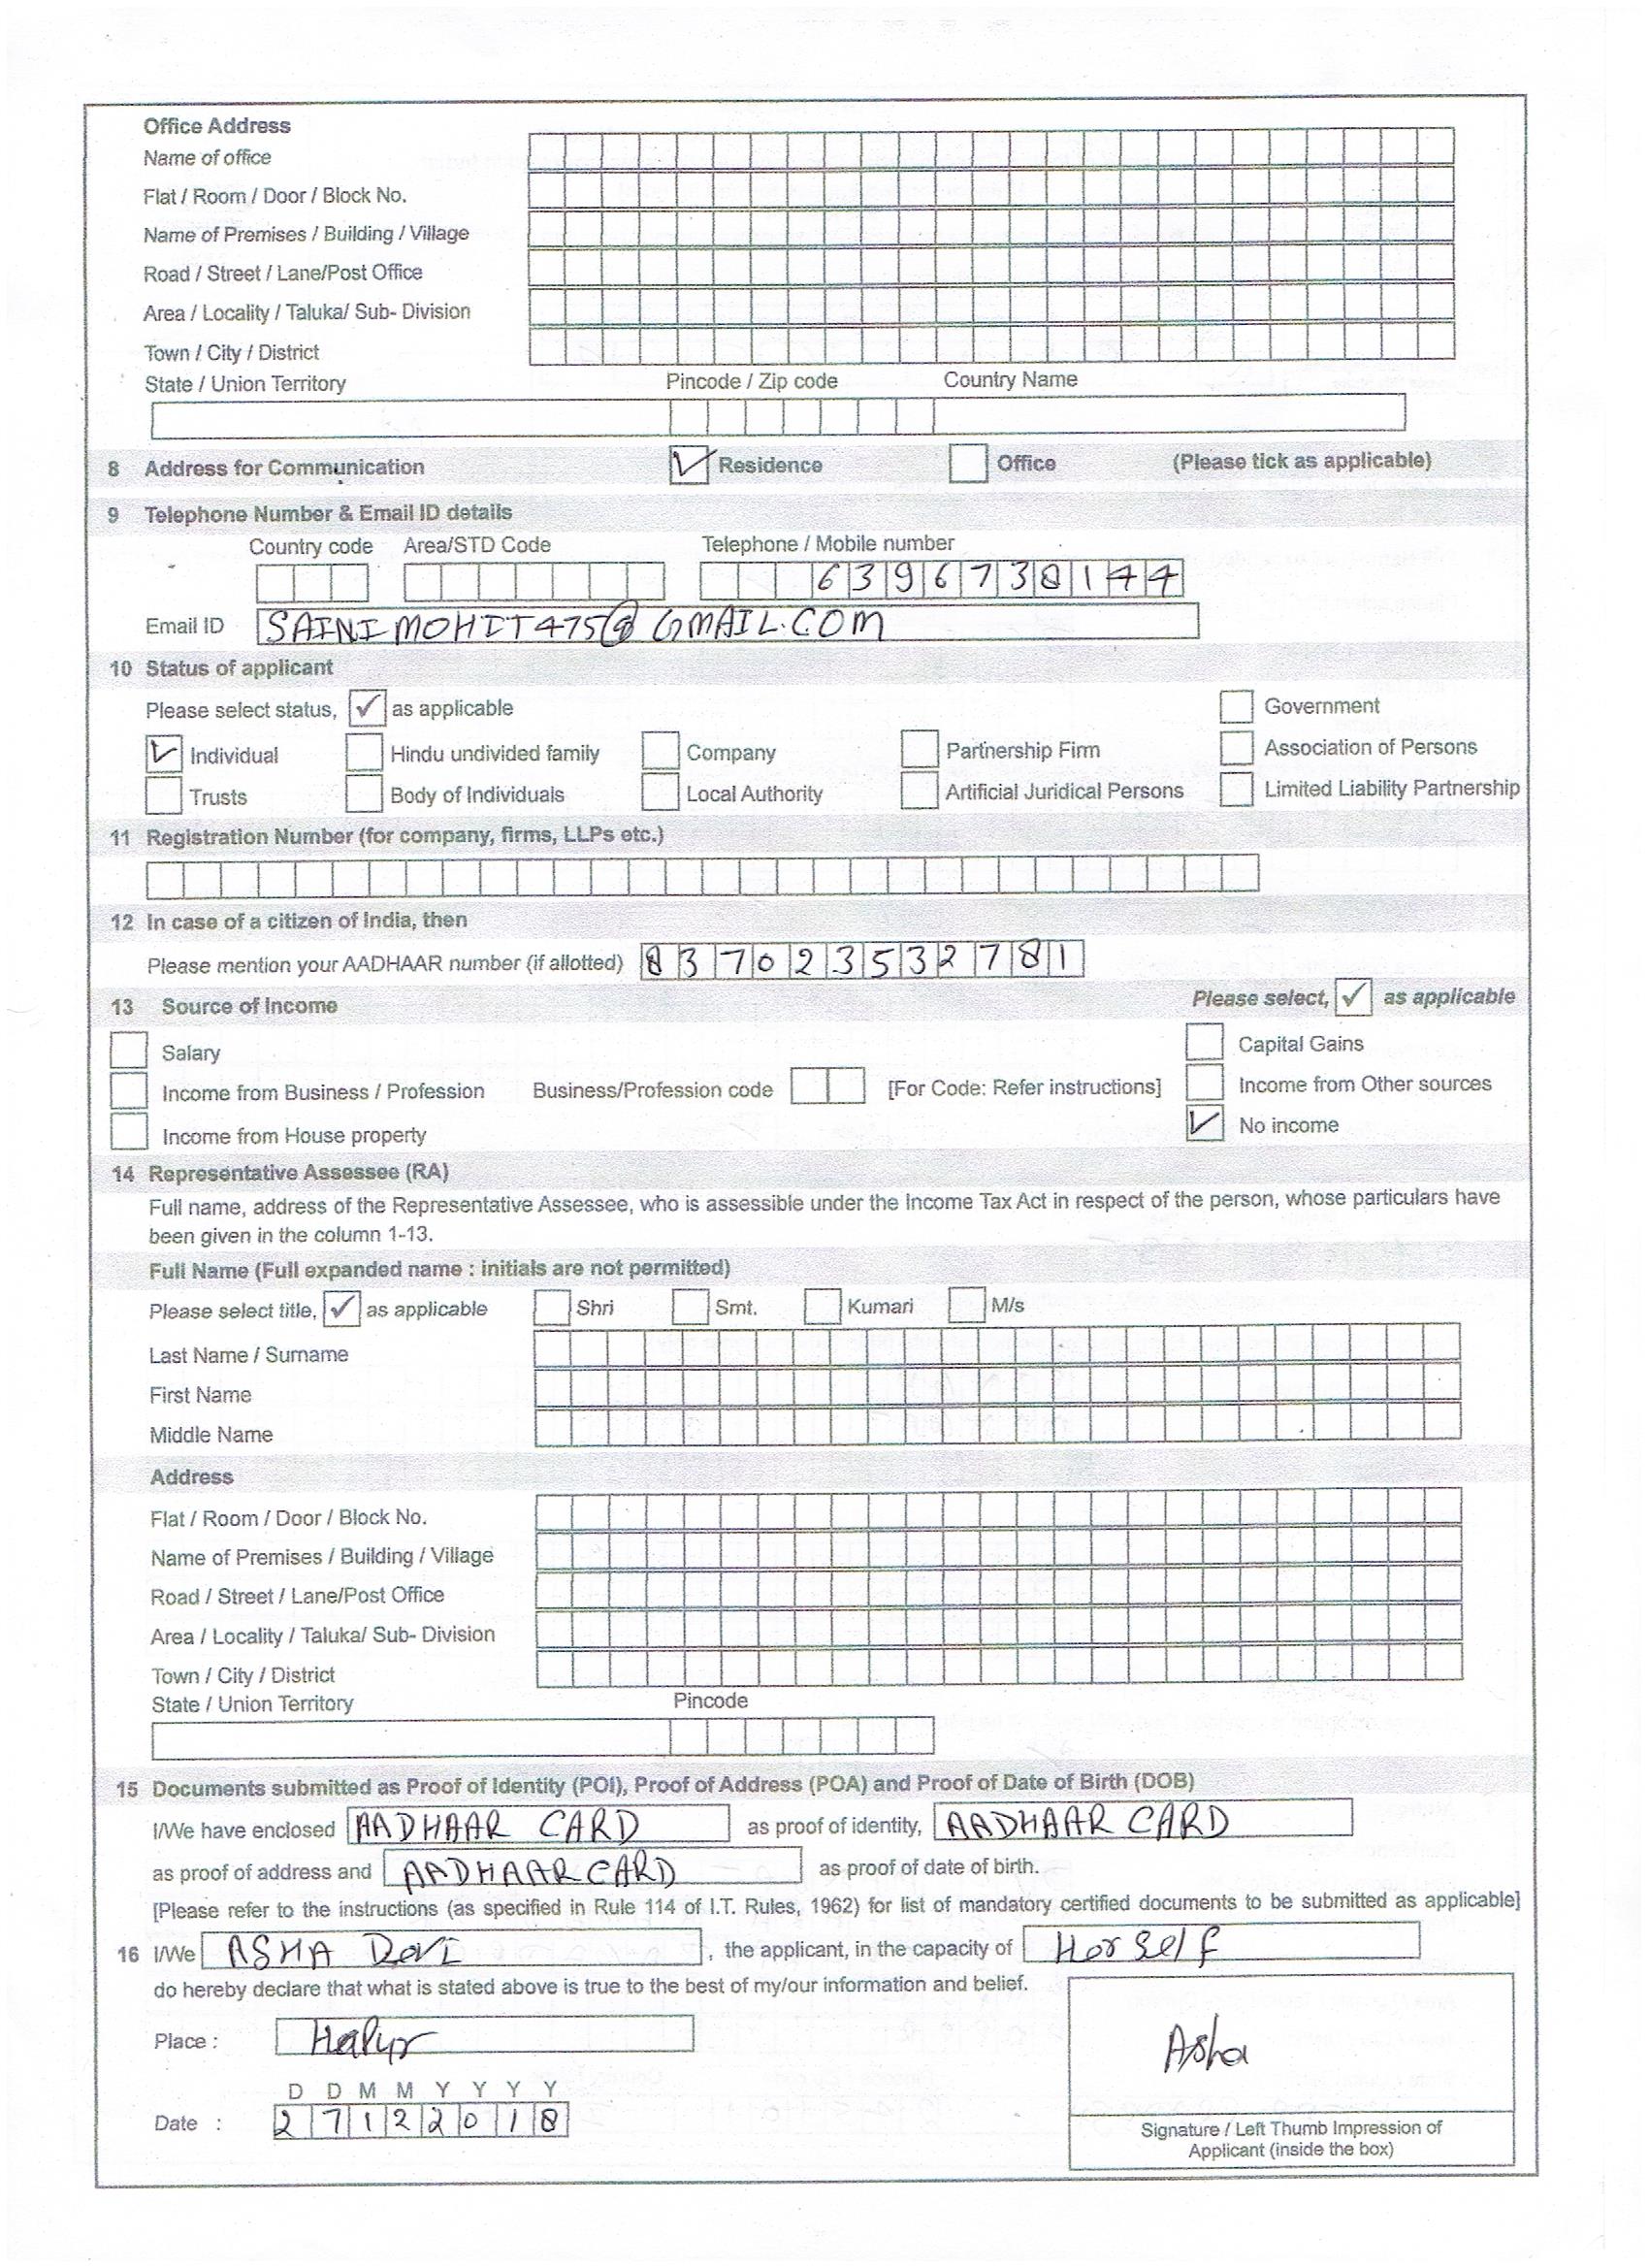 Office Address
Name of office
Flat / Room / Door / Block No.
Name of Premises / Building / Village
Road / Street / Lane/Post Office
Area / Locality / Taluka/ Sub- Division
Town / City / District
State / Union Territory Pincode / Zip code Country Name
8 Address for Communication Residence Office (Please tick as applicable)
9 Telephone Number & Email ID details
Country code Area/STD Code Telephone / Mobile number
6396738144
Email ID SAINIMOHIT475@GMAIL.COM
10 Status of applicant
Please select status, ✓ as applicable Government
Individual Hindu undivided family Company Partnership Firm Association of Persons
Trusts Body of Individuals Local Authority Artificial Juridical Persons Limited Liability Partnership
11 Registration Number (for company, firms, LLPs etc.)
12 In case of a citizen of India, then
Please mention your AADHAAR number (if allotted) 837023532781
13 Source of Income Please select, ✓ as applicable
Salary Capital Gains
Income from Business / Profession Business/Profession code [For Code: Refer instructions] Income from Other sources
Income from House property No income
14 Representative Assessee (RA)
Full name, address of the Representative Assessee, who is assessible under the Income Tax Act in respect of the person, whose particulars have
been given in the column 1-13.
Full Name (Full expanded name : initials are not permitted)
Please select title, ✓ as applicable Shri Smt. Kumari M/s
Last Name / Surname
First Name
Middle Name
Address
Flat / Room / Door / Block No.
Name of Premises / Building / Village
Road / Street / Lane/Post Office
Area / Locality / Taluka/ Sub- Division
Town / City / District
State / Union Territory Pincode
15 Documents submitted as Proof of Identity (POI), Proof of Address (POA) and Proof of Date of Birth (DOB)
I/We have enclosed AADHAAR CARD as proof of identity, AADHAAR CARD
as proof of address and AADHAAR CARD as proof of date of birth.
[Please refer to the instructions (as specified in Rule 114 of I.T. Rules, 1962) for list of mandatory certified documents to be submitted as applicable]
16 I/We ASHA DevI , the applicant, in the capacity of Her Self
do hereby declare that what is stated above is true to the best of my/our information and belief.
Place : Hapur
Asha
D D M M Y Y Y Y
Date : 27122018
Signature / Left Thumb Impression of
Applicant (inside the box)